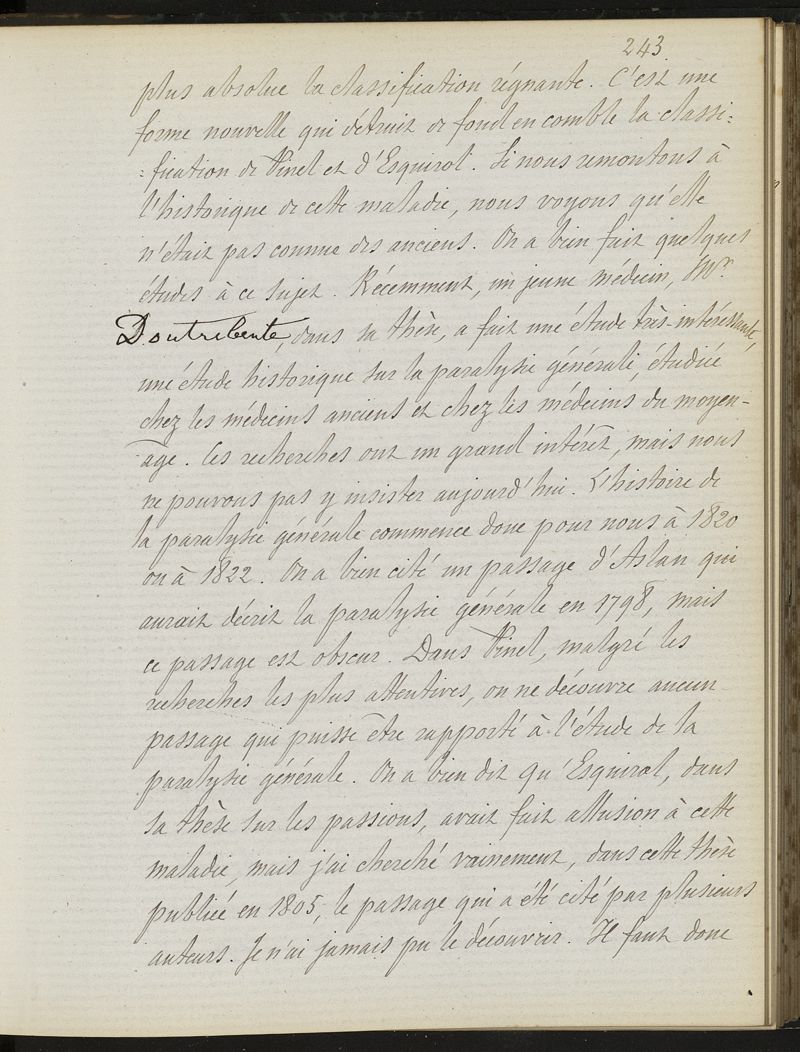 243
plus absolue la classification régnante. C'est une
forme nouvelle qui détruit de fond en comble la classi=
=fication de Pinel et d'Esquirol. Si nous remontons à
l'historique de cette maladie, nous voyons qu'elle
n'était pas connue des anciens. On a bien fait quelques
études à ce sujet. Récemment, un jeune médecin, Mr
Doutrebente, dans sa thèse, a fait une étude très-intéressante,
une étude historique sur la paralysie générale, étudiée
chez les médecins anciens et chez les médecins du moyen-
âge. Ces recherches ont un grand intérêt, mais nous
ne pouvons pas y insister aujourd'hui. L'histoire de
la paralysie générale commence donc pour nous à 1820
ou à 1822. On a bien cité un passage d'Aslan qui
aurait décrit la paralysie générale en 1798, mais
ce passage est obscur. Dans Pinel, malgré les
recherches les plus attentives, on ne découvre aucun
passage qui puisse être rapporté à l'étude de la
paralysie générale. On a bien dit qu'Esquirol, dans
sa thèse sur les passions, avait fait allusion à cette
maladie, mais j'ai cherché vainement, dans cette thèse
publiée en 1805, le passage qui a été cité par plusieurs
auteurs. Je n'ai jamais pu le découvrir. Il faut donc